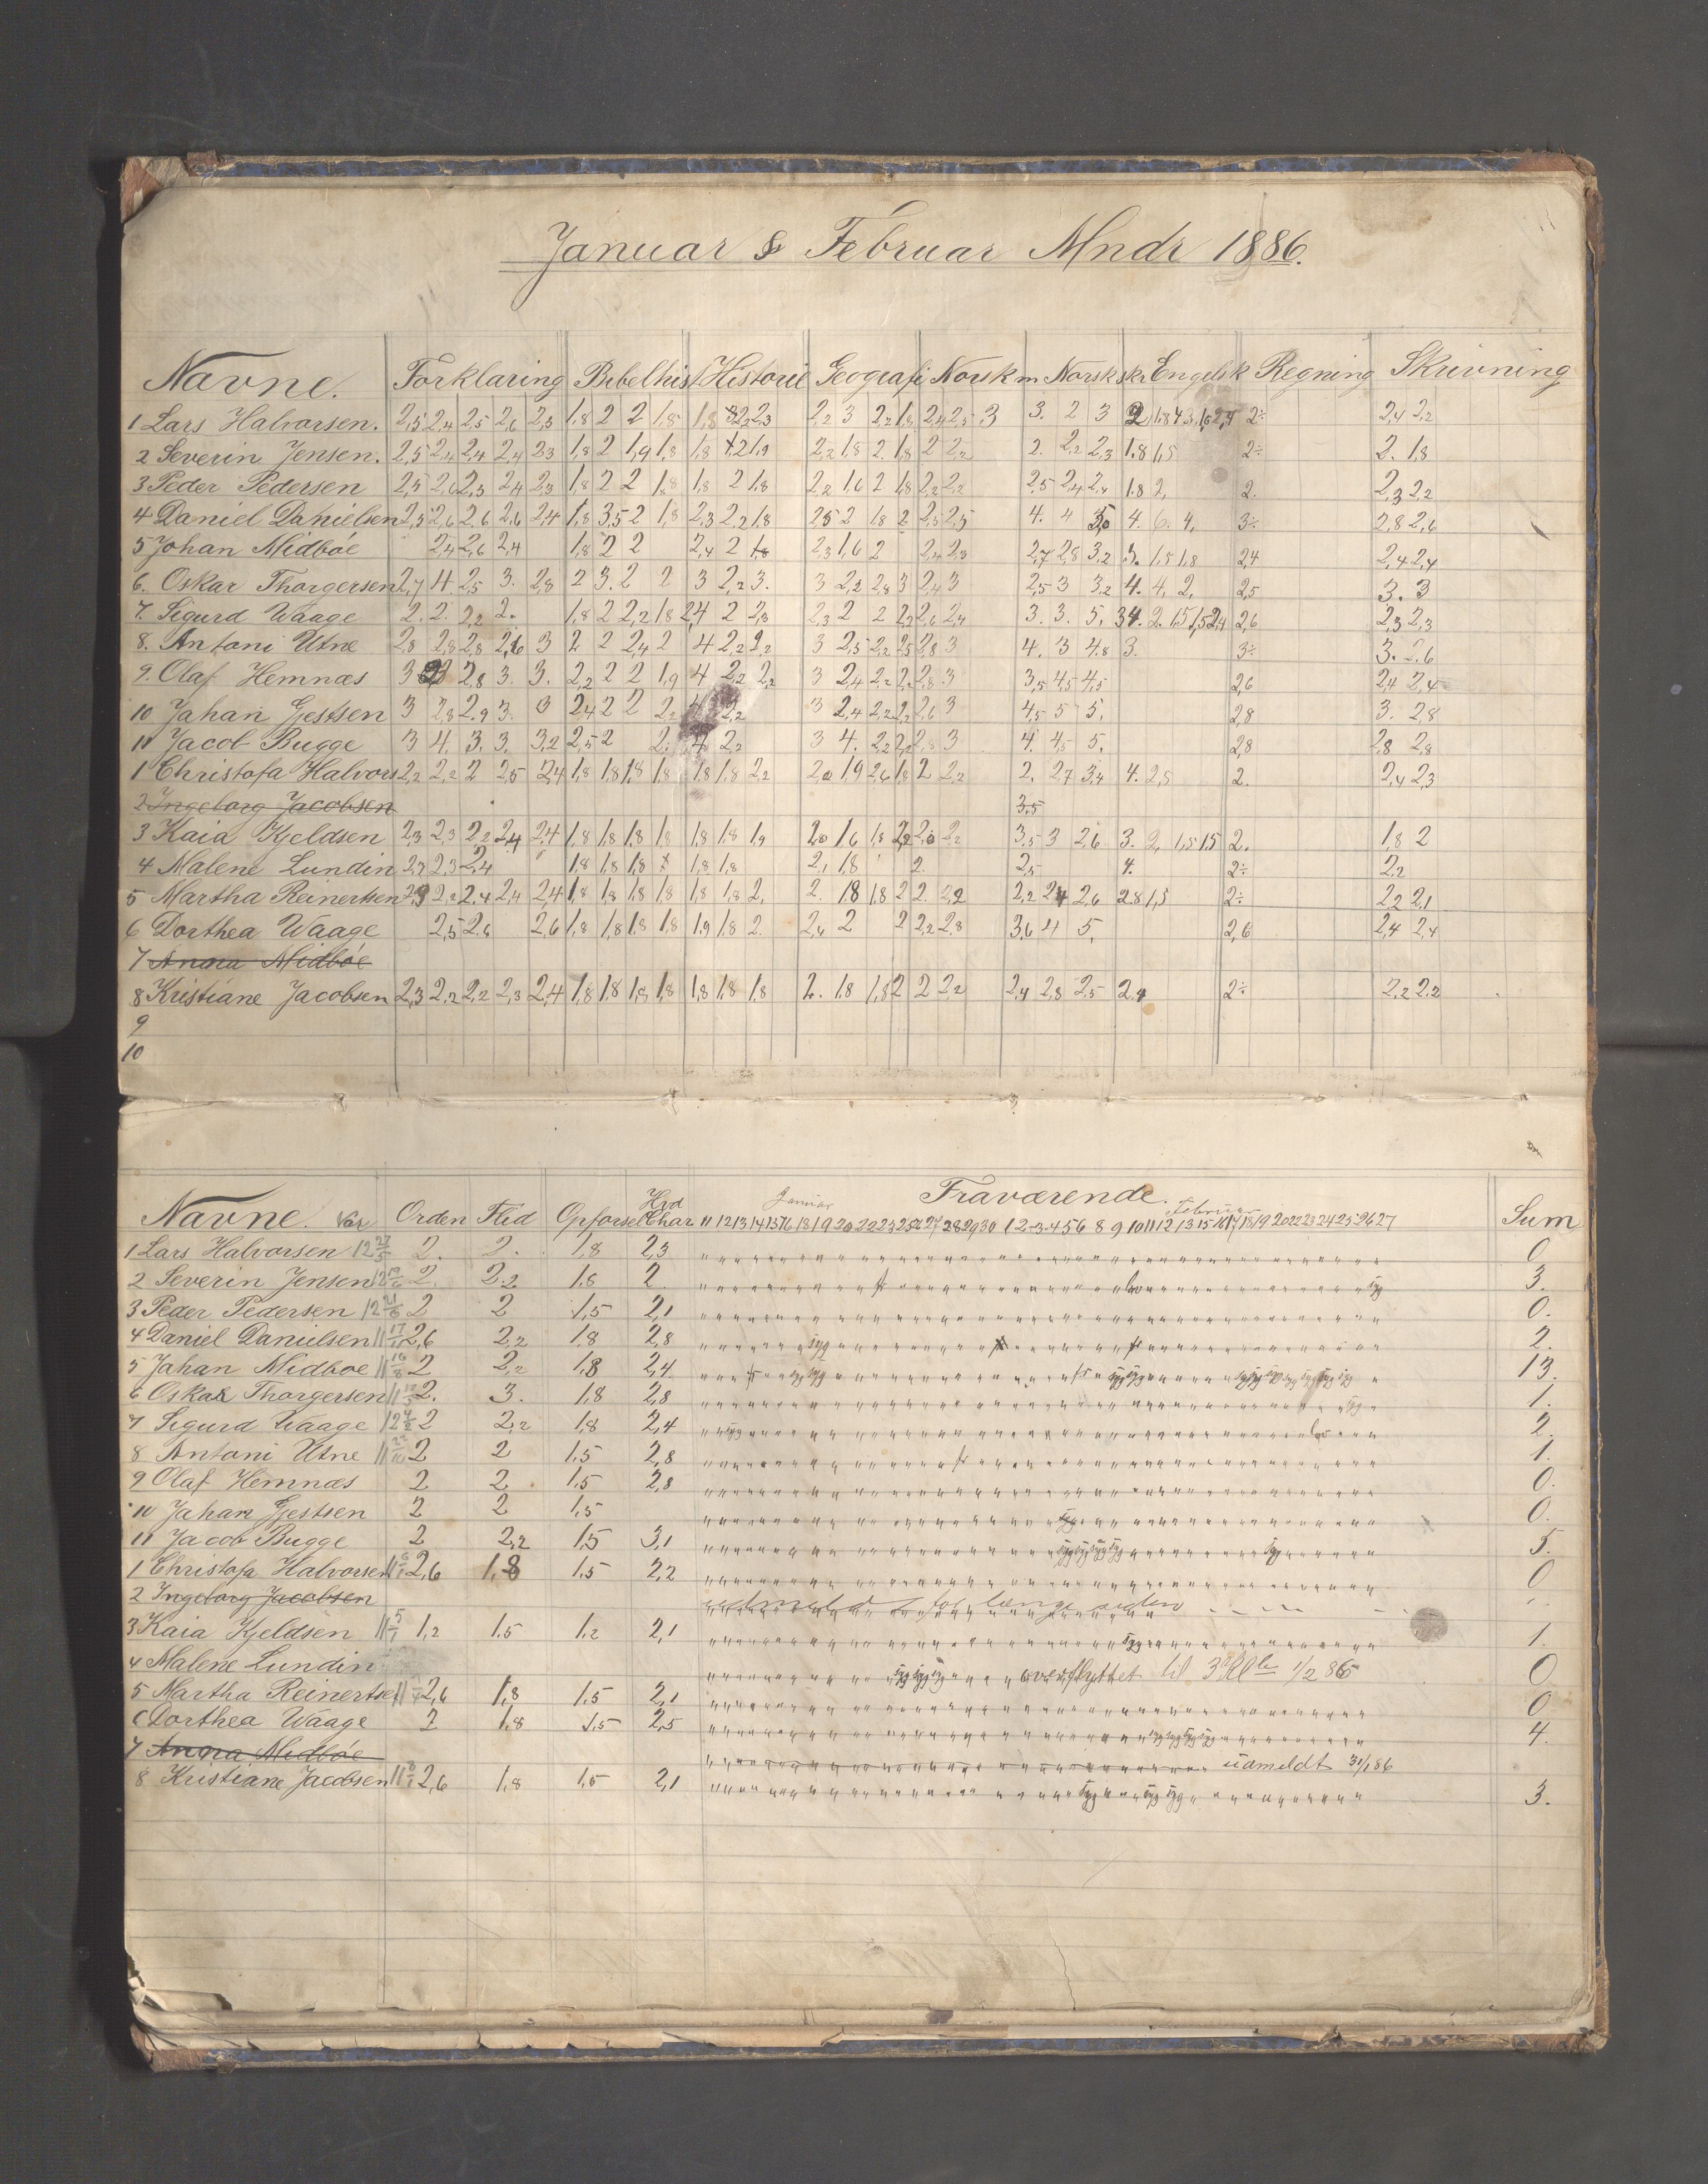 Januar & Februar Mndr 1886.
Navne. Forklaring Bibelhist. Historie Geografi Norsk m Norsk skr Engelsk Regning Skrivning
1 Lars Halvorsen. 2,5 2,4 2,5 2,6 2,3 1,8 2 2 1,8 2,2 3 2,2 1,8 2,4 2,5 3 3. 2 3 2÷ 2,4 2,2
2 Severin Jensen. 2,5 2,4 2,4 2,4 2,3 1,8 2 1,9 1,8 2,2 1,8 2. 1,8 2 2,2 2. 2,2 2,3 1.8 1,5 2÷ 2. 1,8
3 Peder Pedersen 2,5 2,6 2,3 2,4 2,3 1,8 2 2 1,8 1,8 2 1,8 2,2 1,6 2 1,8 2,2 2,2 2,5 2,4 2,4 1.8 2, 2. 2,3 2,2
4 Daniel Danielsen 2,5 2,6 2,6 2,6 2,4 1,8 3,5 2 1,8 2,3 2,2 1,8 2,5 2 1,8 2 2,5 2,5 4. 4 4. 6. 4, 3÷ 2,8 2,6
5 Johan Midbøe 2,4 2,6 2,4 1,8 2 2 2,4 2 1,8 2,3 1,6 2 2,4 2,3 2,7 2,8 3,2 3. 1,5 1,8 2,4 2,4 2,4
6. Oskar Thorgersen 2,7 4. 2,5 3. 2,8 2 3. 2 2 3 2,2 3. 3 2,2 2,8 3 2,4 3 2,5 3 3,2 4. 4, 2, 2,5 3. 3
7. Sigurd Waage 2. 2. 2,2 2. 1,8 2 2,2 1,8 2,4 2 2,3 2,3 2 2 2,2 2,6 2,4 3. 3. 5. 2,6 2,3 2,3
8. Antoni Utne 2,8 2,8 2,8 2,6 3 2 2 2,4 2 4 2,2 2,2 3 2,5 2,2 2,5 2,8 3 4. 3 4.8 3. 3÷ 3. 2.6
9. Olaf Hemnæs 3 2,8 3. 3. 2,2 2 2 1,9 4 2,2 2,2 3 2,4 2,2 2,2 2,8 3 3,5 4,5 4,5 2,6 2,4 2,4
10 Johan Gjestsen 3 2,8 2.9 3. 3 2,4 2 2 2,2 2,2 3 2,4 2,2 2,2 2,6 3 4,5 5 5. 2,8 3. 2,8
11 Jacob Bugge 3 4. 3. 3. 3,2 2,5 2 2. 4 2,2 3 4. 2,2 2,2 2,8 3 4. 4,5 5. 2,8 2,8 2,8
1 Christofa Halvors 2,2 2,2 2 2,5 2,4 1,8 1,8 1,8 1,8 1,8 1,8 2,2 2,0 1,9 2,6 1,8 2 2,2 2. 2,7 3,4 4. 2,5 2. 2,4 2,3
2 Ingeborg Jacobsen 3,5
3 Kaia Kjeldsen 2,3 2,3 2,2 2,4 2,4 1,8 1,8 1,8 1,8 1,8 1,8 1,9 2,0 1,6 1,8 2,2 2,0 2,2 3,5 3 2,6 3. 2, 1,5 1,5 2. 1,8 2
4 Malene Lundin 2,3 2,3 2,4 1,8 1,8 1,8 1,8 1,8 2,1 1,8 2. 2,5 4. 2÷ 2,2
5 Martha Reinertsen 2,2 2.4 2,4 2,4 1,8 1,8 1,8 1,8 1,8 1,8 2. 2. 1,8 1,8 2 2. 2,2 2,2 2,4 2,6 2.8 1,5 2÷ 2,2 2,1
6 Dorthea Waage 2,5 2.6 2,6 1,8 1,8 1,8 1,8 1,9 1,8 2. 2,4 2 2 2,2 2,8 3,6 4 5, 2,6 2,4 2,4
7 Anna Midbøe
8 Kristiane Jacobsen 2,3 2,2 2,2 2,3 2,4 1,8 1,8 1,8 1,8 1,8 1,8 1,8 2. 1,8 1,8 2 2 2,2 2,4 2,8 2,5 2,4 2÷ 2,2 2,2
9
10
Navne. Orden Flid Opførsel Hvd Char Januar Fraværende. Februar Sum
11 12 13 14 15 16 18 19 20 21 22 23 25 26 27 28 29 30 1 2 3 4 5 6 8 9 10 11 12 13 15 16 17 18 19 20 22 23 24 25 26 27
1 Lars Halvorsen 2. 2. 1,8 2,3 0
2 Severin Jensen 2. 2.2 1,8 2 syg 3.
3 Peder Pedersen 2 2 1,5 2,1 0.
4 Daniel Danielsen 2,6 2,2 1,8 2,8 syg 2.
5 Johan Midboe 2 2,2 1,8 2,4 syg syg syg syg syg syg syg syg 13.
6 Oskar Thorgersen 2. 3. 1,8 2,8 syg 1.
7 Sigurd Waage 2 2,2 1,8 2,4 syg 2.
8 Antoni Utne 2 2 1,5 2,8 1.
9 Olaf Hemnæs 2 2 1,5 2,8 0.
10 Johan Gjestsen 2 2 1,5 0.
11 Jacob Bugge 2 2,2 1,5 3,1 syg syg syg syg syg 5.
1 Christofa Halvorsen 2,6 1,8 1,5 2,2 0
2 Ingeborg Jacobsen udmeldt for længe siden
3 Kaia Kjeldsen 1,2 1.5 1,2 2,1 syg 1.
4 Malene Lundin syg syg syg overflyttet til 3die Kl 1/2 86 0
5 Martha Reinertsen 2,6 1,8 1.5 2,1 0
6 Dorthea Waage 2 1,8 1,5 2,5 syg syg syg syg 4.
7 Anna Midbøe udmeldt 31/1 86
8 Kristiane Jacobsen 2,6 1,8 1,5 2,1 syg syg syg 3.